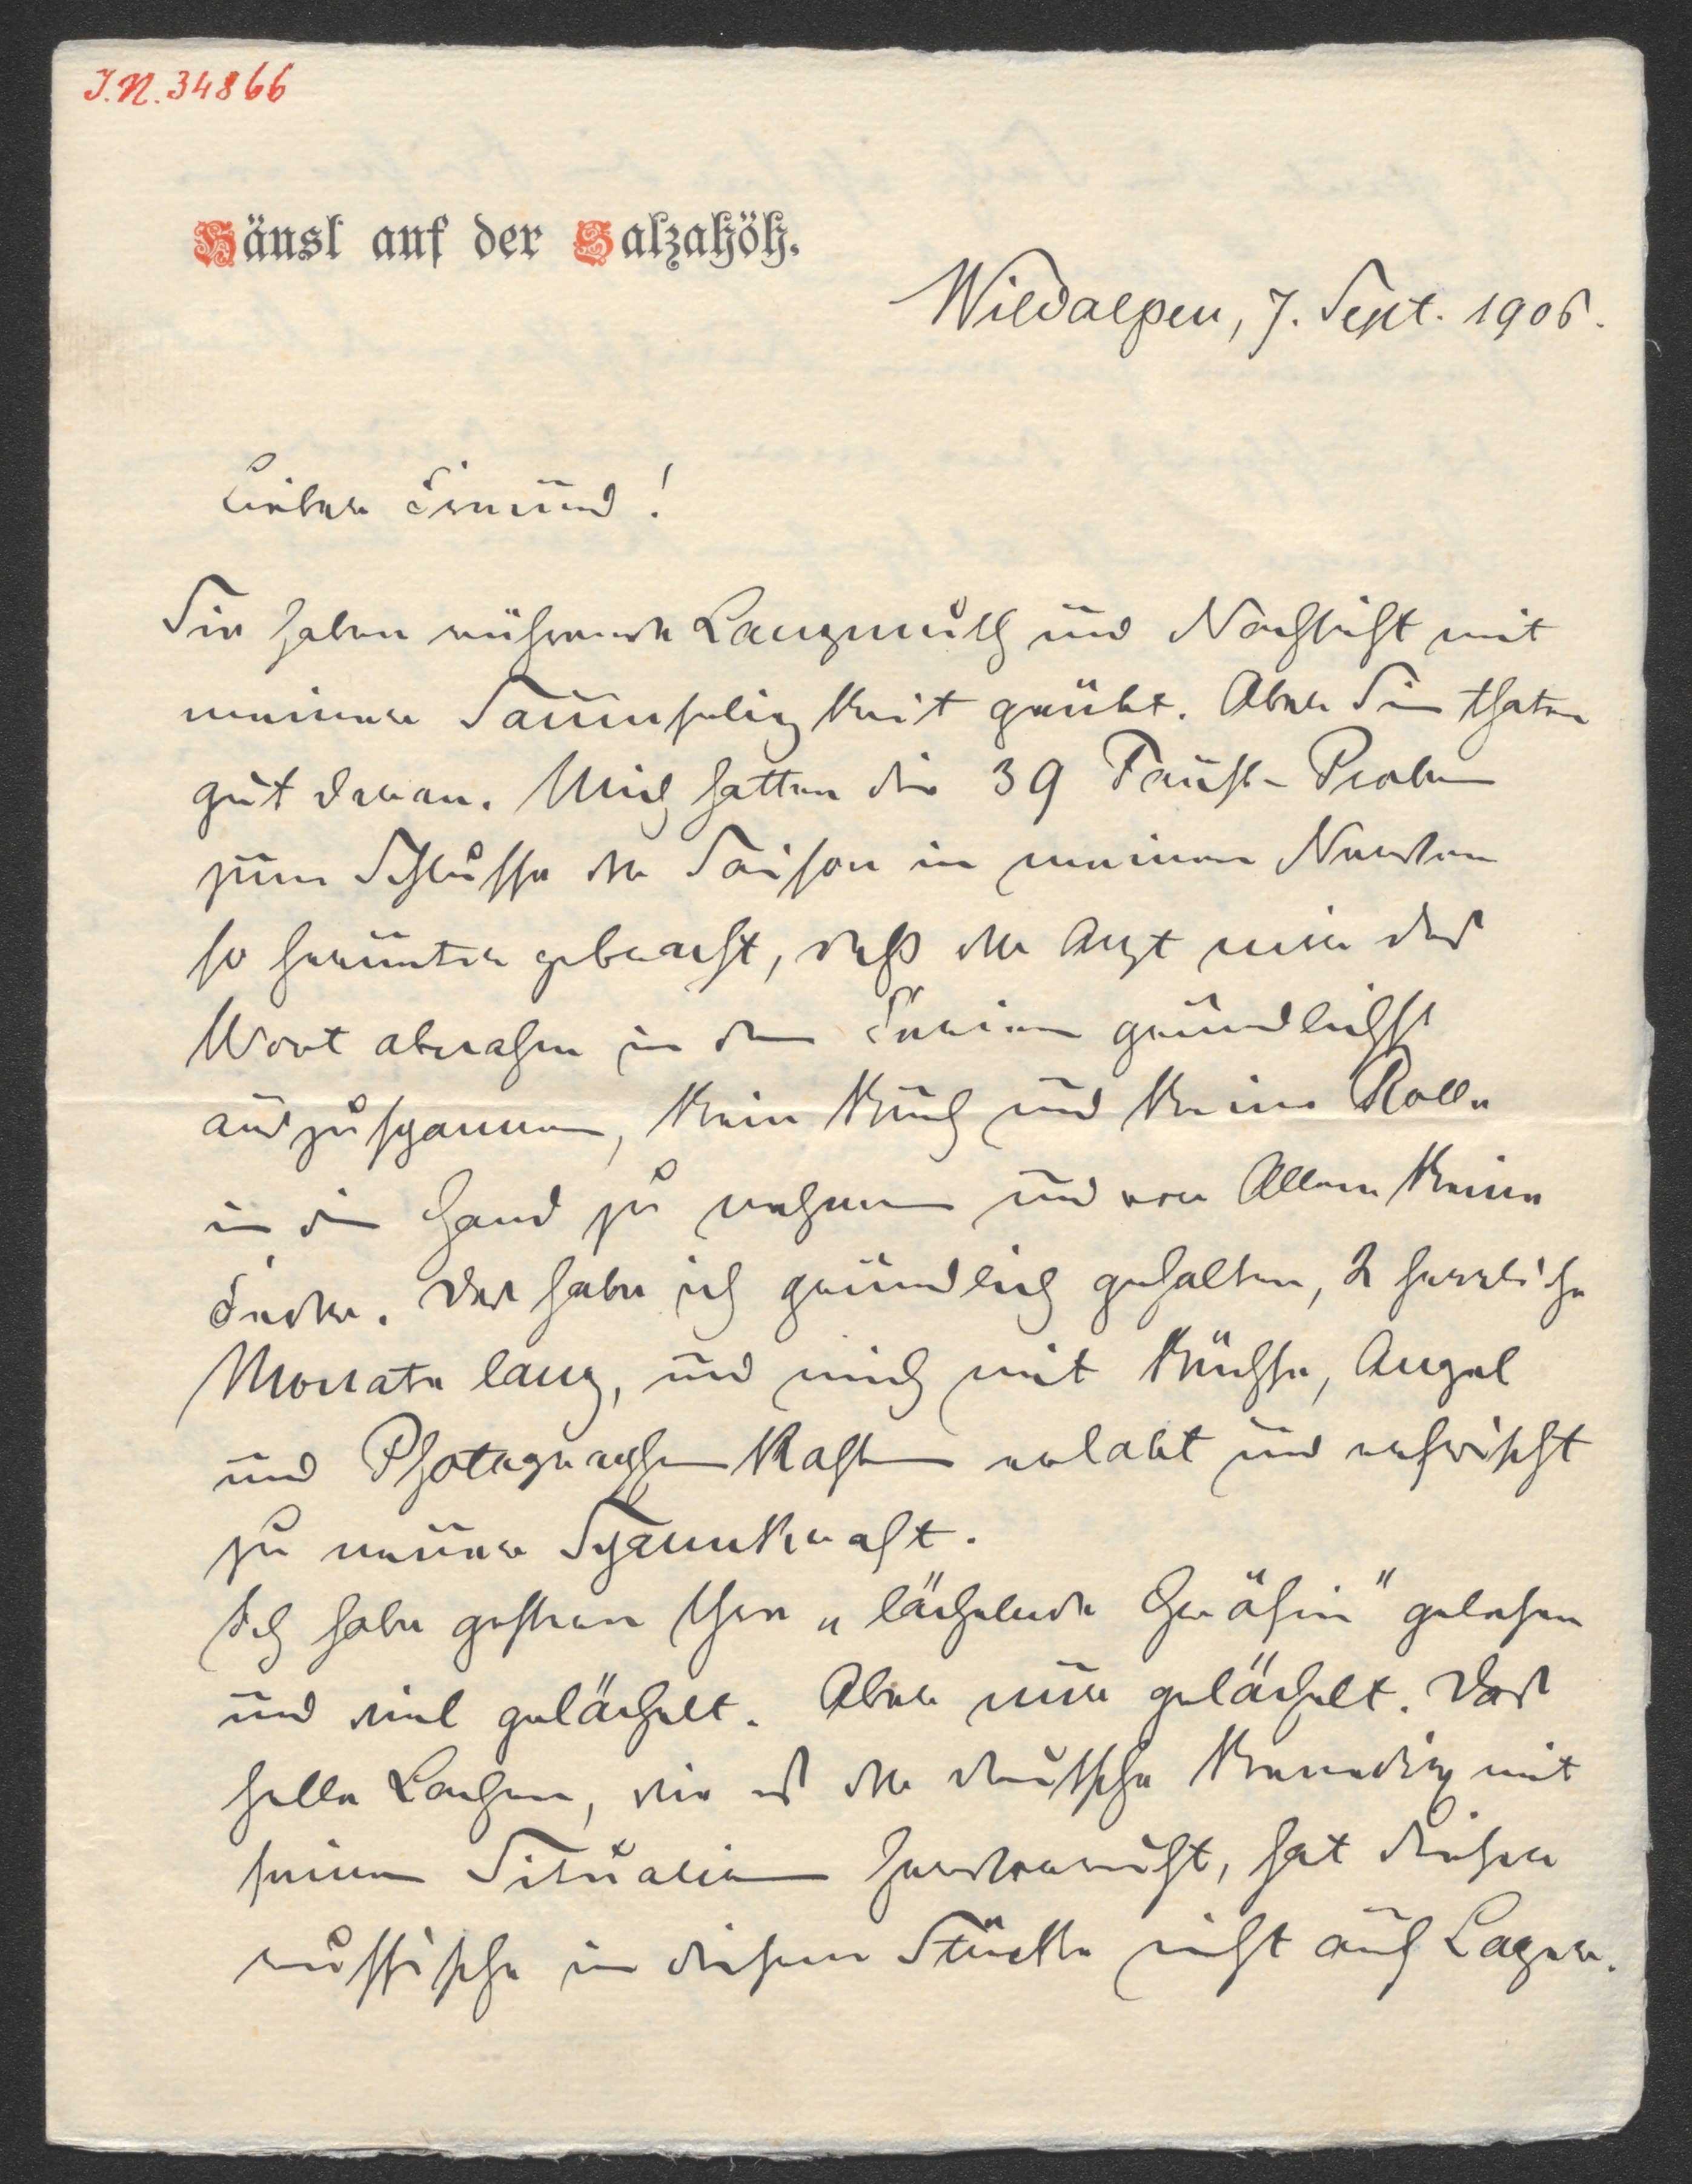 J.N. 34866
Häusl auf der Salzahöh.
Wildalpen, 7. Sept. 1906.
Lieber Freund!
Sie haben rührende Langmuth und Nachsicht mit
meiner Saumseligkeit geübt. Aber Sie thaten
gut daran. Mich hatten die 39 Faust-Proben
zum Schlusse der Saison in meinen Nerven
so herunter gebracht, daß der Arzt mir das
Wort abnahm in den Ferien gründlichst
auszuspannen, kein Buch und keine Rolle
in die Hand zu nehmen und vor Allem keine
Feder. Das habe ich gründlich gehalten, 2 herrliche
Monate lang, und mich mit Büchse, Angel
und Photographenkasten erlabt und erfrischt
zu neuer Spannkraft.
Ich habe gestern Ihre „lächelnde Gräfin" gelesen
und viel gelächelt. Aber nur gelächelt. Das
helle Lachen, wie es der deutsche mit
seinen hervorruft, hat dieser
russische in diesem Stücke nicht auf Lager.